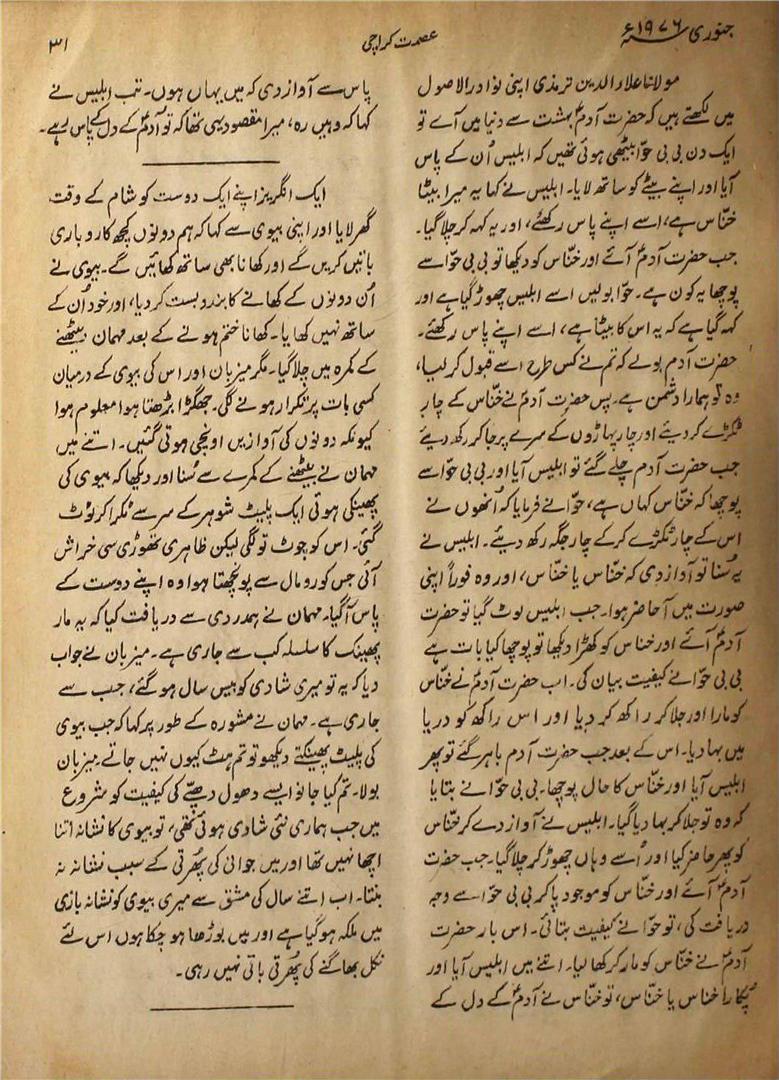 جنوری ۱۹۷۶ء
عصمت کراچی
۳۱
مولانا علاء الدین ترمذی اپنی نوادر الاصول
میں لکھتے ہیں کہ حضرت آدمؑ بہشت سے دنیا میں آے تو
ایک دن بی بی حوّا بیٹھی ہوئی تھیں کہ ابلیس اُن کے پاس
آیا اور اپنے بیٹے کو ساتھ لایا۔ ابلیس نے کہا یہ میرا بیٹا
خنّاس ہے، اسے اپنے پاس رکھئے، اور یہ کہہ کر چلا گیا۔
جب حضرت آدمؑ آئے اور خنّاس کو دیکھا تو بی بی حوّا سے
پوچھا یہ کون ہے۔ حوّا بولیں اسے ابلیس چھوڑ گیا ہے اور
کہہ گیا ہے کہ یہ اس کا بیٹا ہے، اسے اپنے پاس رکھئے۔
حضرت آدم بولے کہ تم نے کس طرح اسے قبول کر لیا،
وہ تو ہمارا دشمن ہے۔ پس حضرت آدمؑ نے خنّاس کے چار
ٹکڑے کر دیئے اور چار پہاڑوں کے سرے پر جا کر رکھ دیئے
جب حضرت آدم چلے گئے تو ابلیس آیا اور بی بی حوّا سے
پوچھا کہ خنّاس کہاں ہے، حوّا نے فرمایا کہ اُنھوں نے
اس کے چار ٹکڑے کر کے چار جگہ رکھ دیئے۔ ابلیس نے
یہ سُنا تو آواز دی کہ خنّاس یا خنّاس، اور وہ فوراً اپنی
صورت میں آ حاضر ہوا۔ جب ابلیس لوٹ گیا تو حضرت
آدمؑ آئے اور خناس کو کھڑا دیکھا تو پوچھا کیا بات ہے
بی بی حوّا نے کیفیت بیان کی۔ اب حضرت آدمؑ نے خنّاس
کو مارا اور جلا کر راکھ کر دیا اور اس راکھ کو دریا
میں بہا دیا۔ اس کے بعد جب حضرت آدم باہر گئے تو پھر
ابلیس آیا اور خنّاس کا حال پوچھا۔ بی بی حوّا نے بتایا
کہ وہ تو جلا کر بہا دیا گیا۔ ابلیس نے آواز دے کر خنّاس
کو پھر حاضر کیا اور اُسے وہاں چھوڑ کر چلا گیا۔ جب حضرت
آدمؑ آئے اور خنّاس کو موجود پا کر بی بی حوّا سے وجہ
دریافت کی، تو حوّا نے کیفیت بتائی۔ اس بار حضرت
آدمؑ نے خنّاس کو مار کر کھا لیا۔ اتنے میں ابلیس آیا اور
پُکارا خناس یا خنّاس، تو خنّاس نے آدمؑ کے دل کے
پاس سے آواز دی کہ میں یہاں ہوں۔ تب ابلیس نے
کہا کہ وہیں رہ، میرا مقصود یہی تھا کہ تو آدمؑ کے دل کے پاس رہے۔
ایک انگریز اپنے ایک دوست کو شام کے وقت
گھر لایا اور اپنی بیوی سے کہا کہ ہم دونوں کچھ کاروباری
باتیں کریں گے اور کھانا بھی ساتھ کھائیں گے۔ بیوی نے
اُن دونوں کے کھانے کا بندوبست کر دیا، اور خود اُن کے
ساتھ نہیں کھایا۔ کھانا ختم ہونے کے بعد مہمان بیٹھنے
کے کمرہ میں چلا گیا۔ مگر میزبان اور اس کی بیوی کے درمیان
کسی بات پر تکرار ہونے لگی۔ جھگڑا بڑھتا ہوا معلوم ہوا
کیونکہ دونوں کی آوازیں اونچی ہوتی گئیں۔ اتنے میں
مہمان نے بیٹھنے کے کمرے سے سُنا اور دیکھا کہ بیوی کی
پھینکی ہوئی ایک پلیٹ شوہر کے سر سے ٹکرا کر ٹوٹ
گئی۔ اس کو چوٹ تو لگی لیکن ظاہری تھوڑی سی خراش
آئی جس کو رومال سے پونچھتا ہوا وہ اپنے دوست کے
پاس آ گیا۔ مہمان نے ہمدردی سے دریافت کیا کہ یہ مار
پھینک کا سلسلہ کب سے جاری ہے۔ میزبان نے جواب
دیا کہ یہ تو میری شادی کو بیس سال ہو گئے، جب سے
جاری ہے۔ مہمان نے مشورہ کے طور پر کہا کہ جب بیوی
کی پلیٹ پھینکتے دیکھو تو تم ہٹ کیوں نہیں جاتے۔ میزبان
بولا۔ تم کیا جانو ایسے دھول دھپّے کی کیفیت کو شروع
میں جب ہماری نئی شادی ہوئی تھی، تو بیوی کا نشانہ اتنا
اچھا نہیں تھا اور میں جوانی کی پُھرتی کے سبب نشانہ نہ
بنتا۔ اب اتنے سال کی مشق سے میری بیوی کو نشانہ بازی
میں ملکہ ہو گیا ہے اور میں بوڑھا ہو چکا ہوں اس لئے
نکل بھاگنے کی پُھرتی باقی نہیں رہی۔